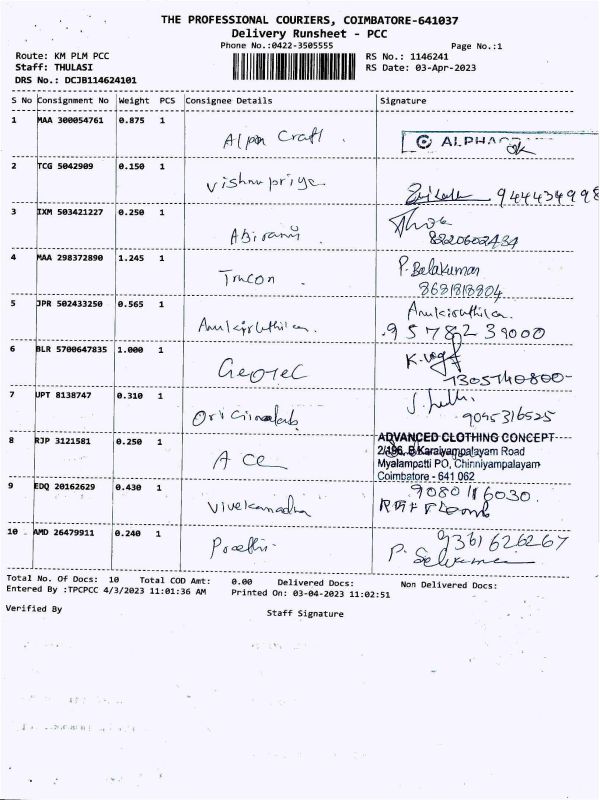 THE PROFESSIONAL COURIERS, COIMBATORE-641037
Delivery Runsheet - PCC
Phone No.:0422-3505555 Page No.:1
Route: KM PLM PCC RS No.: 1146241
Staff: THULASI RS Date: 03-Apr-2023
DRS No.: DCJB114624101
S No Consignment No Weight PCS Consignee Details Signature
1 MAA 300054761 0.875 1 Alpha Craft. ALPHA ok
2 TCG 5042909 0.150 1 Vishnupriya 944434998
3 IXM 503421227 0.250 1 Abirami 8220602434
4 MAA 298372890 1.245 1 Trucon. P. Balakumar
8681818804
5 JPR 502433250 0.565 1 Anukiruthika. Anukiruthika.
9578239000
6 BLR 5700647835 1.000 1 Geotec
7305740800-
7 UPT 8138747 0.310 1
9095316525
8 RJP 3121581 0.250 1 ACE ADVANCED CLOTHING CONCEPT
2/496, B.Karaiyampalayam Road
Myalampatti PO, Chinniyampalayam
Coimbatore - 641 062
9 EDQ 20162629 0.430 1 Vivekanandha 9080116030.
10 AMD 26479911 0.240 1 Preethi. 9361626267
P. Selvakumar
Total No. Of Docs: 10 Total COD Amt: 0.00 Delivered Docs: Non Delivered Docs:
Entered By :TPCPCC 4/3/2023 11:01:36 AM Printed On: 03-04-2023 11:02:51
Verified By Staff Signature